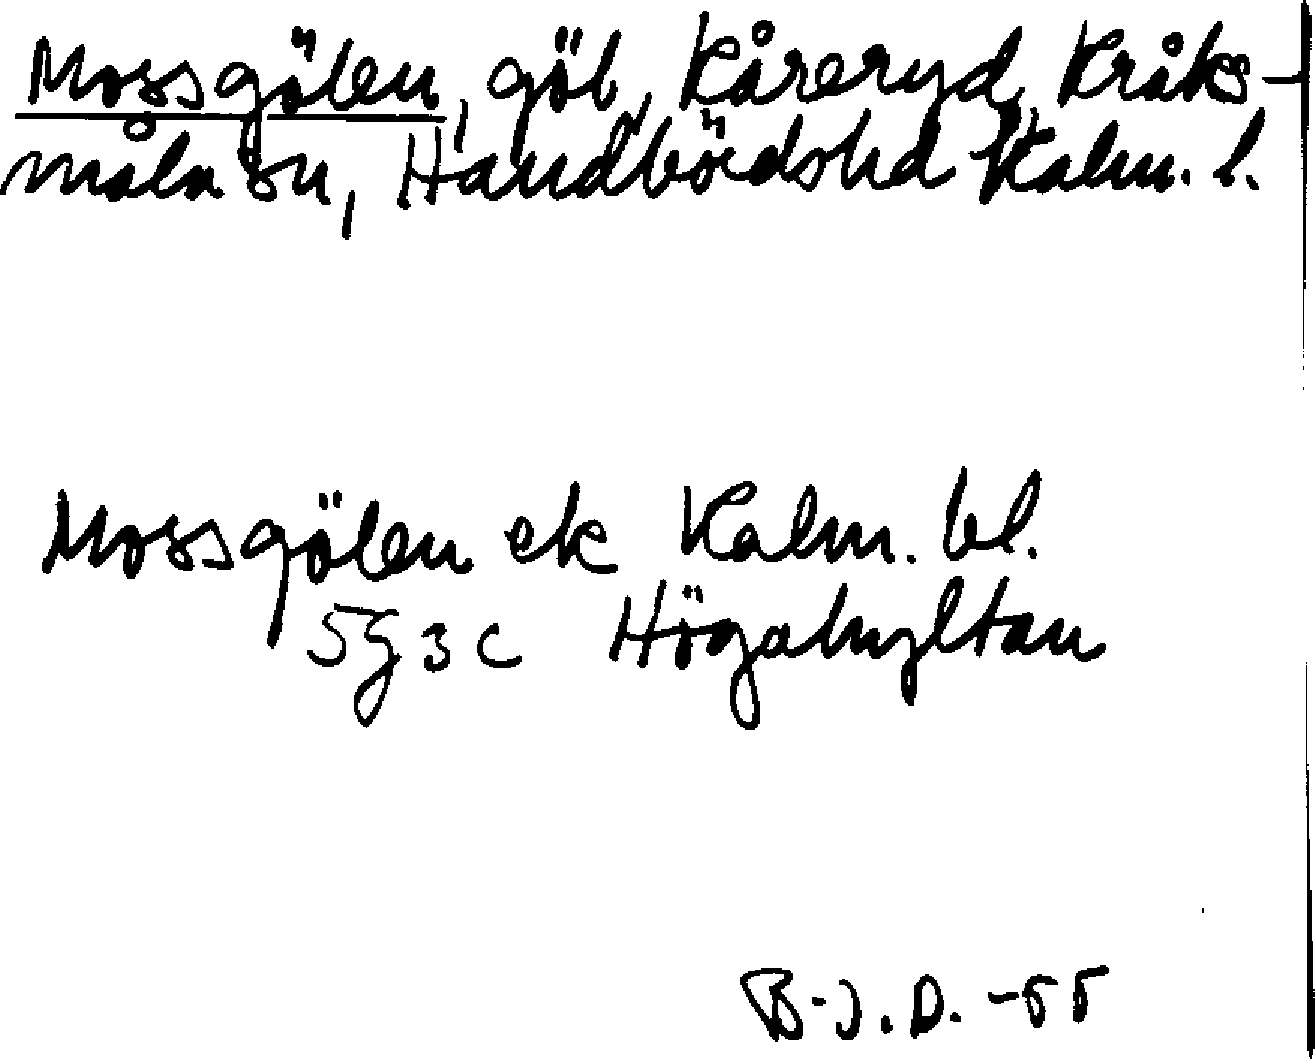 Mossgölen, göl, Kåreryd, Kråks-
måla sn, Handbördshd Kalm. l.
Mossgölen ek Kalm. bl.
5g 3 c Högahyltan
B-J. D. -55